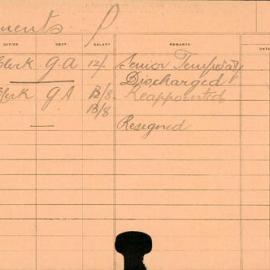 ments P
OFFICE DEPT SALARY REMARKS DATE
Clerk G.A 12/ Senior Temporary
Discharged
Clerk G.A 13/8 Reappointed
13/8
Resigned